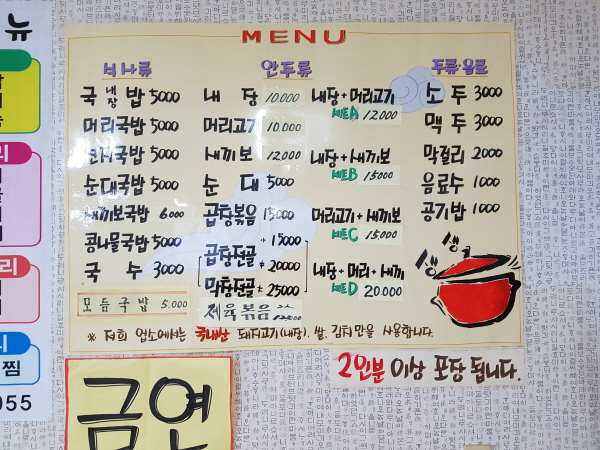 뉴
MENU
식사류
국내장밥 5000
머리국밥 5000
순대국밥 5000
새끼보국밥 6000
콩나물국밥 5000
국수 3000
모듬국밥 5.000
안주류
내장 10.000
머리고기 10.000
새끼보 12000
순대 5000
곱창볶음 15000
곱창전골 15000
20000
막창전골 25000
제육볶음
내장+머리고기
세트A 12000
내장+새끼보
세트B 15000
머리고기+새끼보
세트C 15000
내장+머리+새끼
세트D 20.000
주류·음료
소주 3000
맥주 3000
막걸리 2000
음료수 1000
공기밥 1000
생생
※ 저희 업소에서는 국내산 돼지고기(내장), 쌀, 김치만을 사용합니다.
2인분 이상 포장 됩니다.
금연
리
리
찜
055